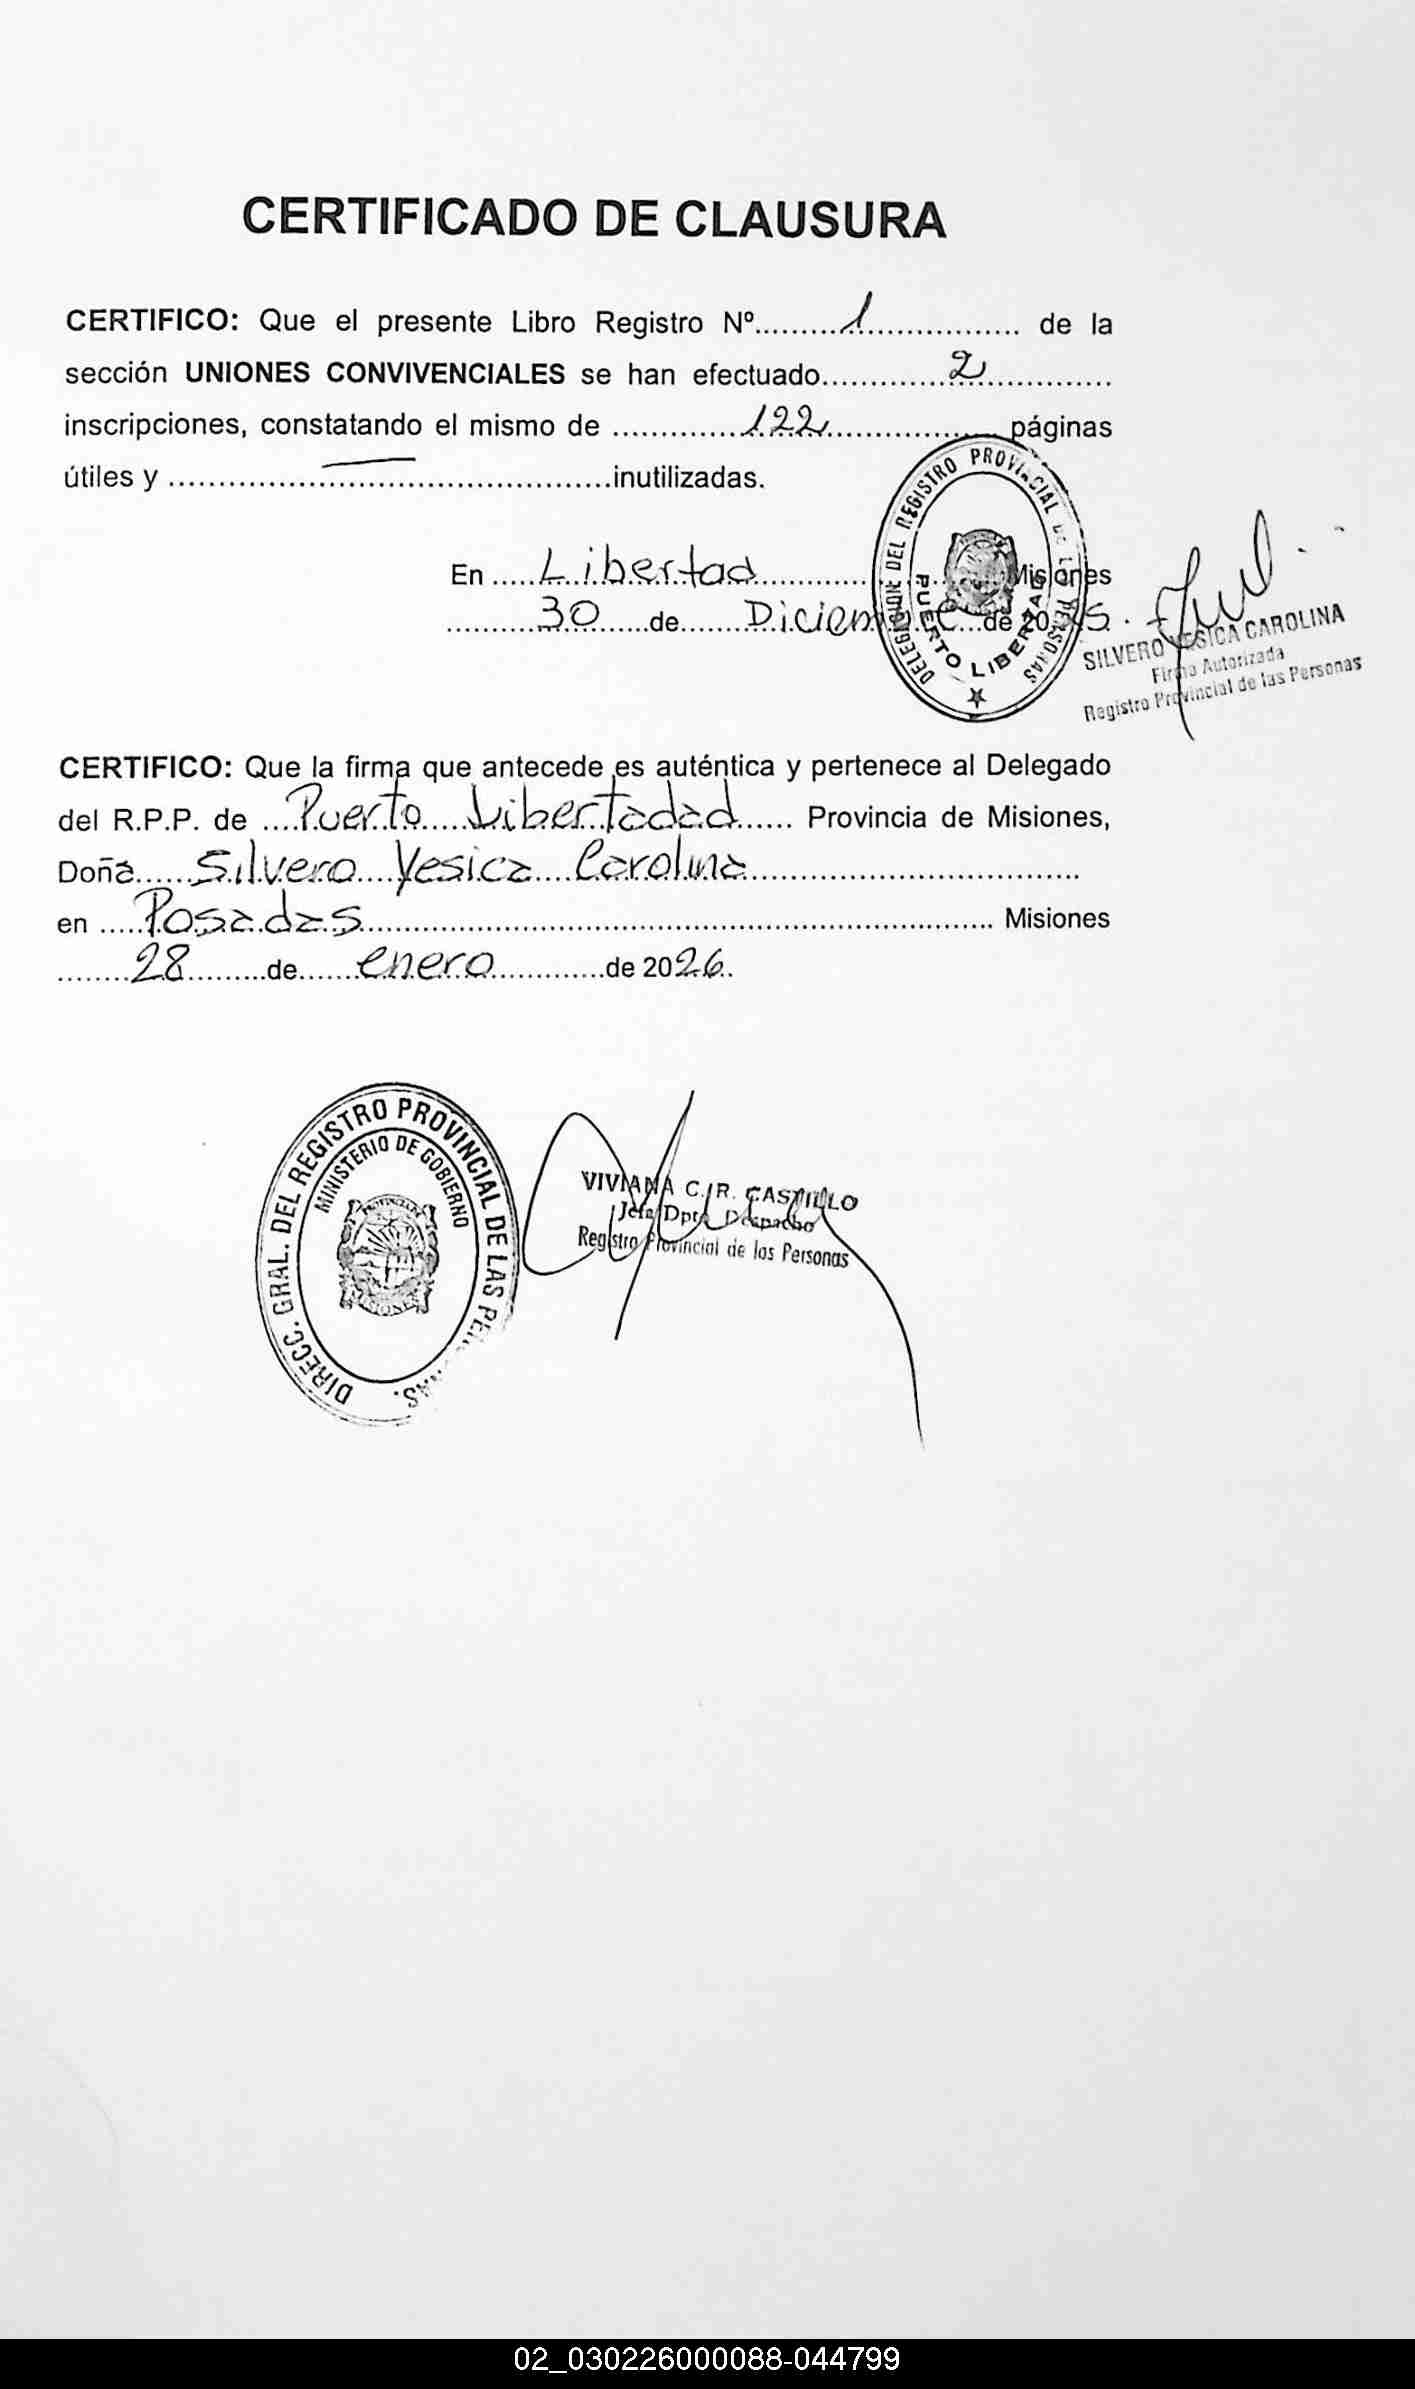 CERTIFICADO DE CLAUSURA
CERTIFICO: Que el presente Libro Registro Nº.........1................ de la
sección UNIONES CONVIVENCIALES se han efectuado..............2..............
inscripciones, constatando el mismo de ..............122.................. páginas
útiles y .............................................inutilizadas.
En .....Libertad............ Misiones
..........30......de.......Diciem... de 20 5.
DELEGACION DEL REGISTRO PROVINCIAL DE LAS PERSONAS
PUERTO LIBERTAD
SILVERO YESICA CAROLINA
Firma Autorizada
Registro Provincial de las Personas
CERTIFICO: Que la firma que antecede es auténtica y pertenece al Delegado
del R.P.P. de ....Puerto....Libertadad...... Provincia de Misiones,
Doña......Silvero....Yesica....Carolina..................................
en .....Posadas................................................................. Misiones
........28.........de......enero............de 2026.
DIRECC. GRAL. DEL REGISTRO PROVINCIAL DE LAS PERSONAS.
MINISTERIO DE GOBIERNO
MISIONES
VIVIANA C. R. CASTILLO
Jefa Dpto Despacho
Registro Provincial de las Personas
02_030226000088-044799